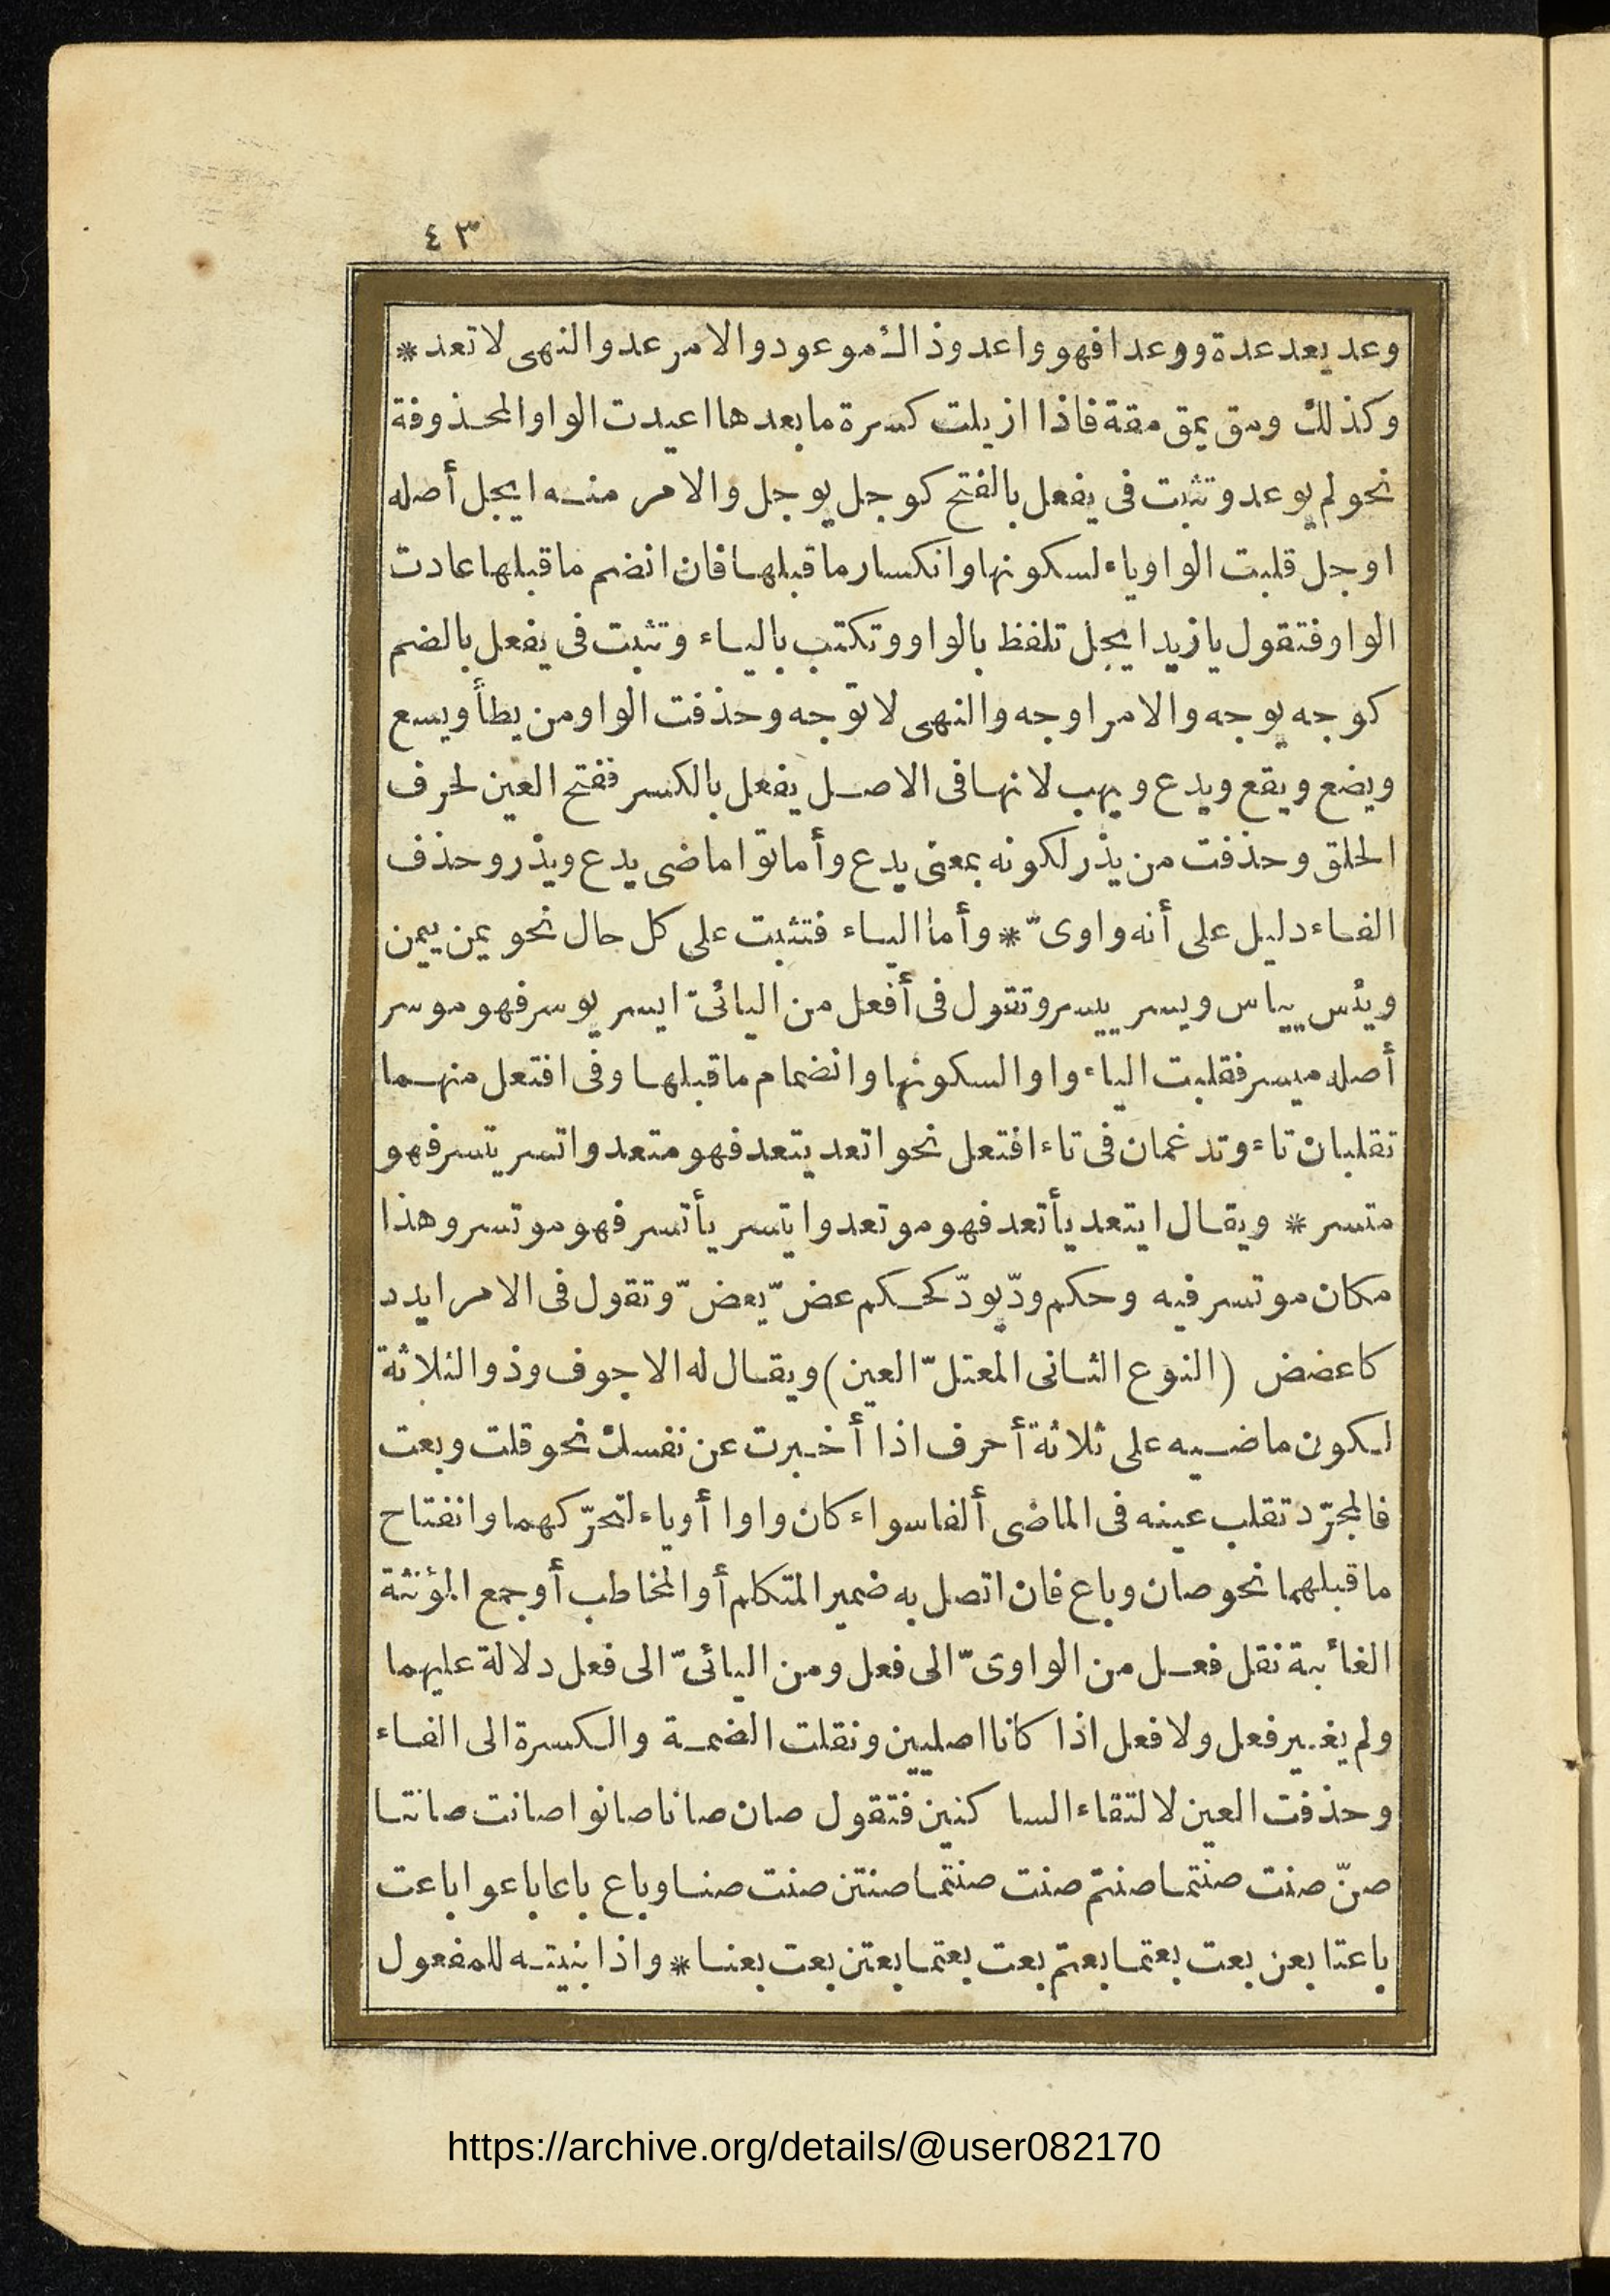 ٤٣
وعد يعد عدة ووعدا فهو واعد وذاك موعود والامر عد والنهى لا تعد *
وكذلك ومق يمق مقة فاذا ازيلت كسرة ما بعدها اعيدت الواو المحذوفة
نحو لم يوعد وتثبت فى يفعل بالفتح كوجل يوجل والامر منه ايجل أصله
اوجل قلبت الواو ياء لسكونها وانكسار ما قبلها فان انضم ما قبلها عادت
الواو فتقول يا زيد ايجل تلفظ بالواو وتكتب بالياء وتثبت فى يفعل بالضم
كوجه يوجه والامر اوجه والنهى لا توجه وحذفت الواو من يطأ ويسع
ويضع ويقع ويدع ويهب لانها فى الاصل يفعل بالكسر ففتح العين لحرف
الحلق وحذفت من يذر لكونه بمعنى يدع وأماتوا ماضى يدع ويذر وحذف
الفاء دليل على أنه واوىّ * وأما الياء فتثبت على كل حال نحو يمن ييمن
ويئس ييأس ويسر ييسر وتقول فى أفعل من اليائىّ ايسر يوسر فهو موسر
أصله ميسر فقلبت الياء واوا لسكونها وانضمام ما قبلها وفى افتعل منهما
تقلبان تاء وتدغمان فى تاء افتعل نحو اتعد يتعد فهو متعد واتسر يتسر فهو
متسر * ويقال ايتعد يأتعد فهو موتعد وايتسر يأتسر فهو موتسر وهذا
مكان موتسر فيه وحكم ودّ يودّ كحكم عضّ يعضّ وتقول فى الامر ايدد
كاعضض (النوع الثانى المعتلّ العين) ويقال له الاجوف وذو الثلاثة
لكون ماضيه على ثلاثة أحرف اذا أخبرت عن نفسك نحو قلت وبعت
فالمجرّد تقلب عينه فى الماضى ألفا سواء كان واوا أو ياء لتحرّكهما وانفتاح
ما قبلهما نحو صان وباع فان اتصل به ضمير المتكلم أو المخاطب أو جمع المؤنثة
الغائبة نقل فعل من الواوىّ الى فعل ومن اليائىّ الى فعل دلالة عليهما
ولم يغير فعل ولا فعل اذا كانا اصليين ونقلت الضمة والكسرة الى الفاء
وحذفت العين لالتقاء الساكنين فتقول صان صانا صانوا صانت صانتا
صنّ صنت صنتما صنتم صنت صنتما صنتن صنت صنا وباع باعا باعوا باعت
باعتا بعن بعت بعتما بعتم بعت بعتما بعتن بعت بعنا * واذا بنيته للمفعول
https://archive.org/details/@user082170